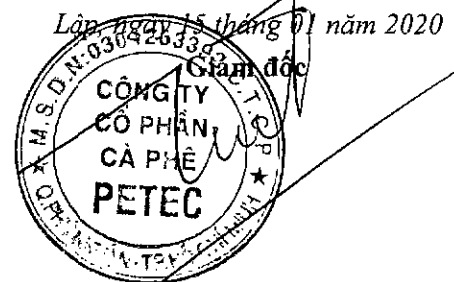 Lập, ngày 15 tháng 01 năm 2020
Giám đốc
M.S.D.N:0304263392 C.T.C.P
CÔNG TY
CỔ PHẦN
CÀ PHÊ
PETEC